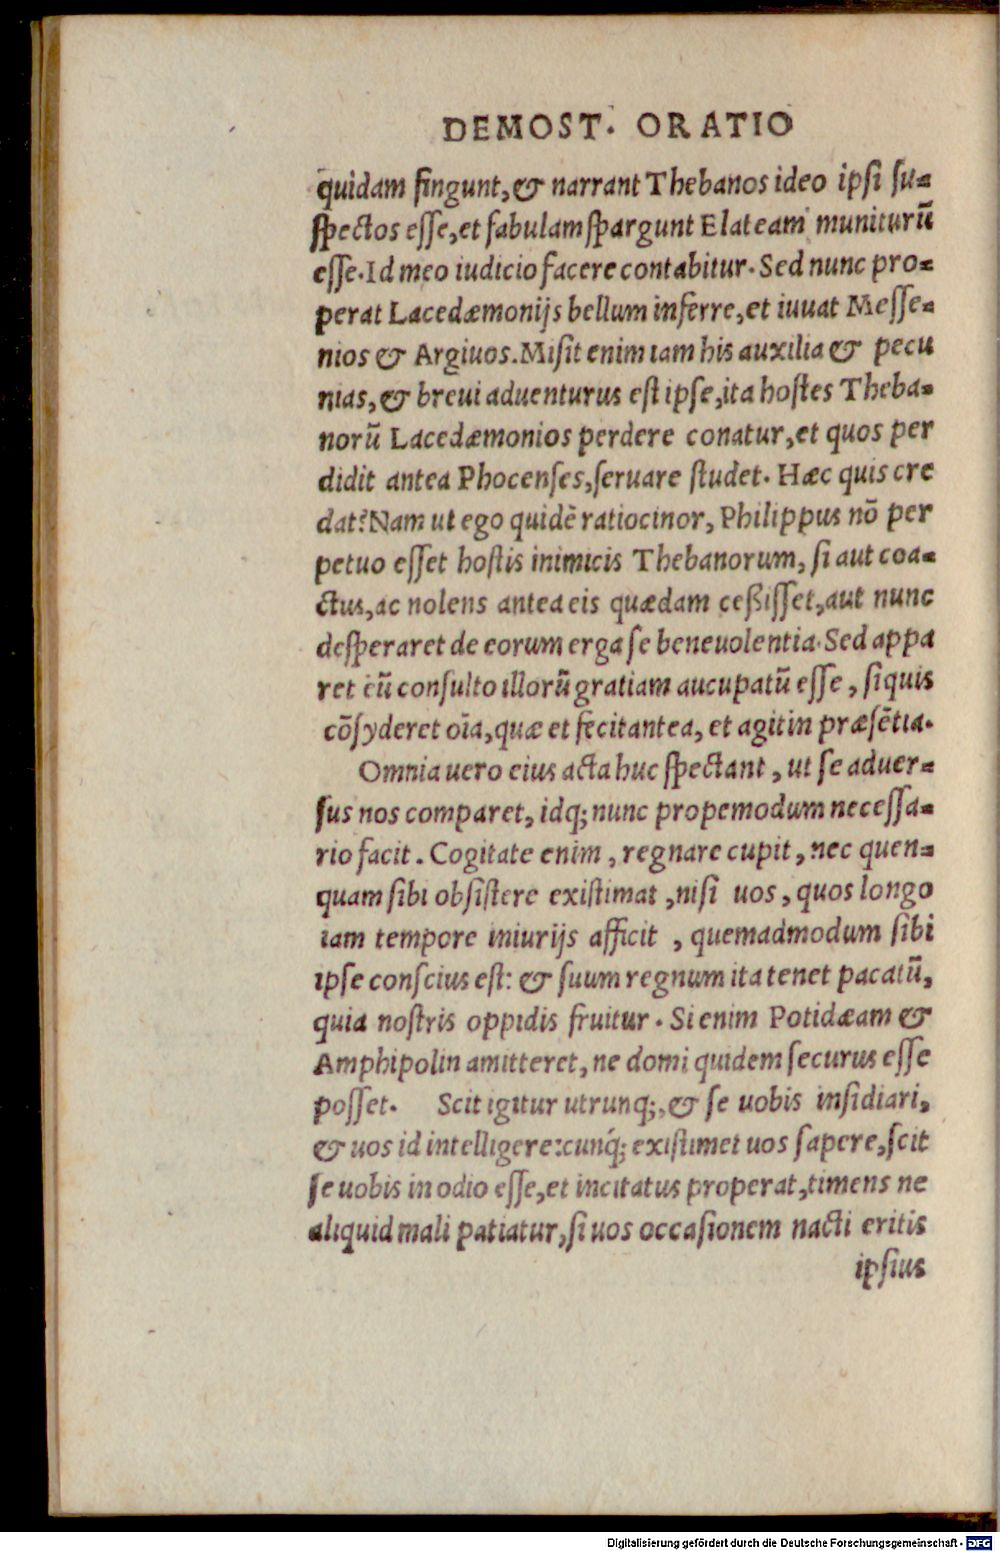 DEMOST. ORATIO
quidam fingunt, & narrant Thebanos ideo ipsi su-
spectos esse, et fabulam spargunt Elateam muniturū
esse. Id meo iudicio facere contabitur. Sed nunc pro-
perat Lacedæmonijs bellum inferre, et iuuat Messe-
nios & Argiuos. Misit enim iam his auxilia & pecu
nias, & breui aduenturus est ipse, ita hostes Theba-
norū Lacedæmonios perdere conatur, et quos per
didit antea Phocenses, seruare studet. Hæc quis cre
dat? Nam ut ego quidē ratiocinor, Philippus nō per
petuo esset hostis inimicis Thebanorum, si aut coa-
ctus, ac nolens antea eis quædam ceßisset, aut nunc
desperaret de eorum erga se beneuolentia. Sed appa
ret eū consulto illorū gratiam aucupatū esse, si quis
cōsyderet oīa, quæ et fecit antea, et agit in præsētia.
Omnia uero eius acta huc spectant, ut se aduer-
sus nos comparet, idq; nunc propemodum necessa-
rio facit. Cogitate enim, regnare cupit, nec quen-
quam sibi obsistere existimat, nisi uos, quos longo
iam tempore iniurijs afficit, quemadmodum sibi
ipse conscius est: & suum regnum ita tenet pacatū,
quia nostris oppidis fruitur. Si enim Potidæam &
Amphipolin amitteret, ne domi quidem securus esse
posset. Scit igitur utrunq;, & se uobis insidiari,
& uos id intelligere: cunq́; existimet uos sapere, scit
se uobis in odio esse, et incitatus properat, timens ne
aliquid mali patiatur, si uos occasionem nacti eritis
ipsius
Digitalisierung gefördert durch die Deutsche Forschungsgemeinschaft - DFG